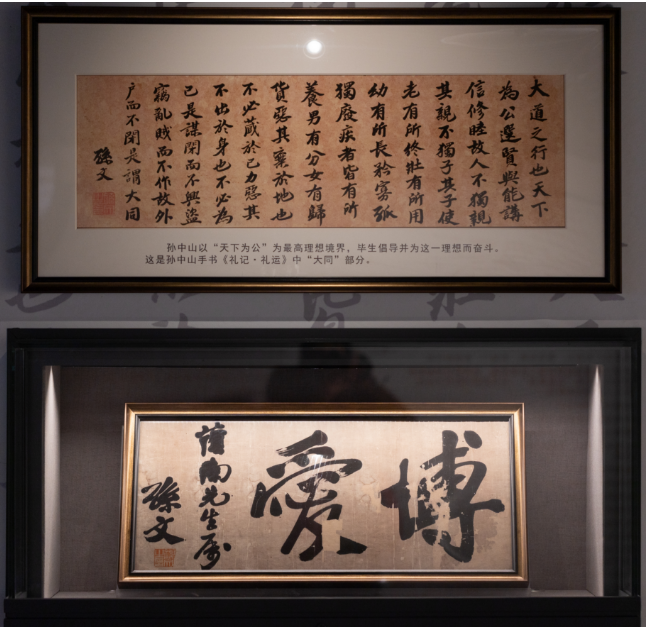 大道之行也天下
為公選賢與能講
信修睦故人不獨親
其親不獨子其子使
老有所終壯有所用
幼有所長矜寡孤
獨廢疾者皆有所
養男有分女有歸
貨惡其棄於地也
不必藏於己力惡其
不出於身也不必為
己是謀閉而不興盜
竊亂賊而不作故外
户而不閉是謂大同
孫文
孙中山以“天下为公”为最高理想境界、毕生倡导并为这一理想而奋斗。
这是孙中山手书《礼记·礼运》中“大同”部分。
博愛
南先生属
孫文